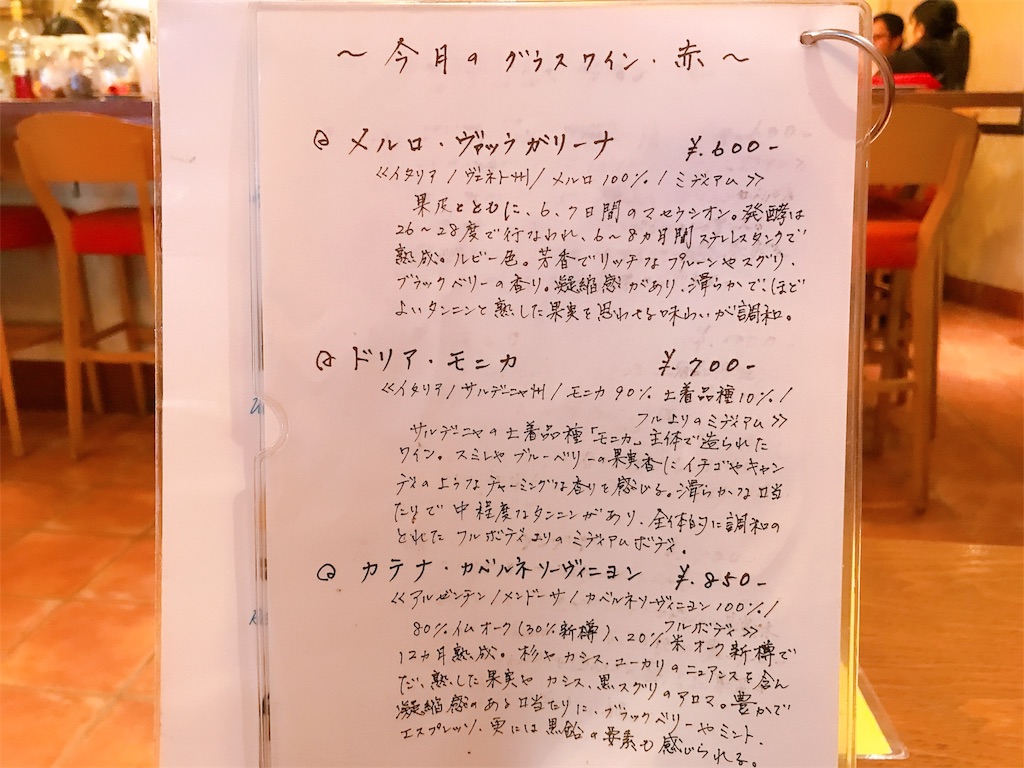 ～今月のグラスワイン・赤～
メルロ・ヴァッラガリーナ ¥.600-
≪イタリア/ヴェネト州/メルロ100%/ミディアム≫
果皮とともに、6、7日間のマセラシオン。発酵は
26～28度で行なわれ、6～8ヵ月間ステンレスタンクで
熟成。ルビー色。芳香でリッチなプルーンやスグリ、
ブラックベリーの香り。凝縮感があり、滑らかで、ほど
よいタンニンと熟した果実を思わせる味わいが調和。
ドリア・モニカ ¥.700-
≪イタリア/サルデーニャ州/モニカ90% 土着品種10%/
フルよりのミディアム≫
サルデニャの土着品種「モニカ」主体で造られた
ワイン。スミレやブルーベリーの果実香にイチゴやキャン
ディのようなチャーミングな香りを感じる。滑らかな口当
たりで中程度なタンニンがあり、全体的に調和の
とれたフルボディよりのミディアムボディ。
カテナ・カベルネソーヴィニヨン ¥.850-
≪アルゼンチン/メンドーサ/カベルネソーヴィニヨン100%/
フルボディ≫
80%仏オーク(30%新樽)、20%米オーク新樽で
12ヵ月熟成。杉やカシス、ユーカリのニュアンスを含ん
だ、熟した果実やカシス、黒スグリのアロマ。豊かで
凝縮感のある口当たりに、ブラックベリーやミント、
エスプレッソ、更には黒飴の要素も感じられる。